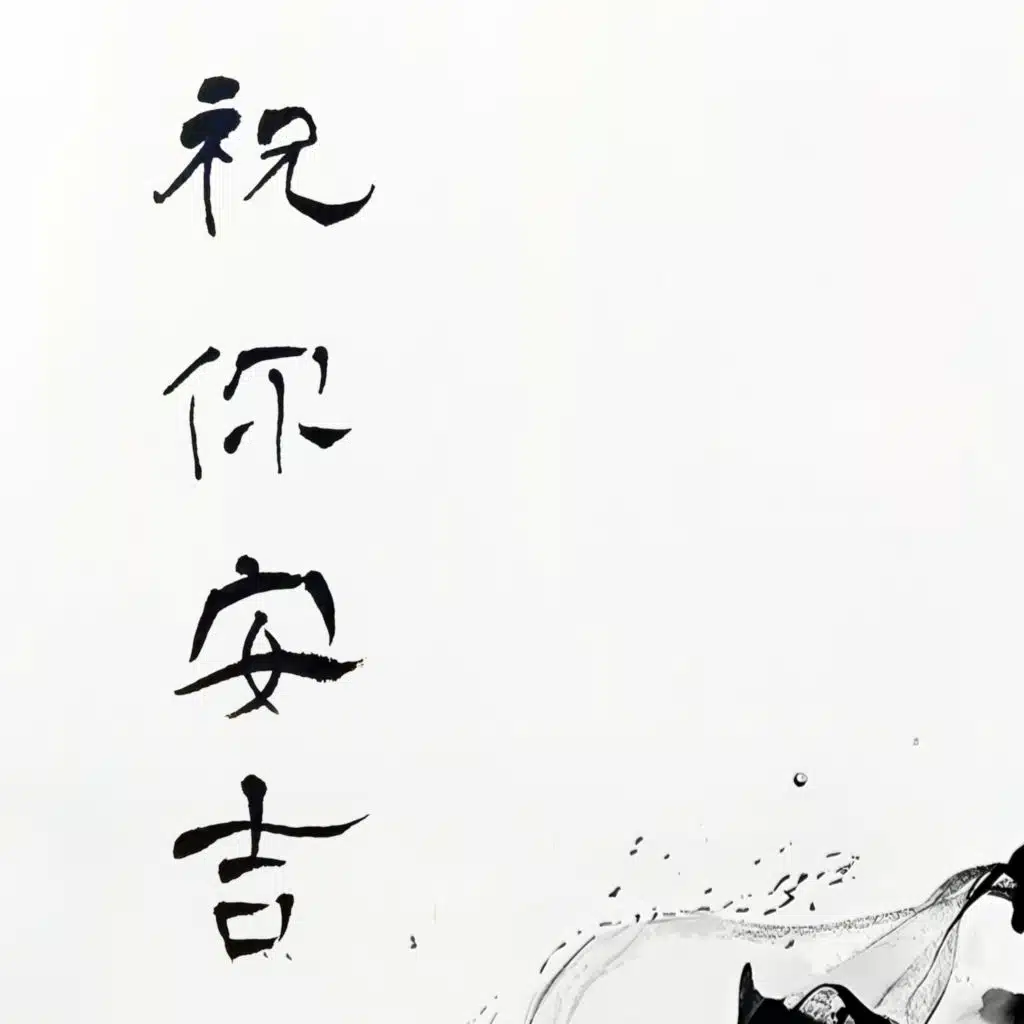 祝你安吉